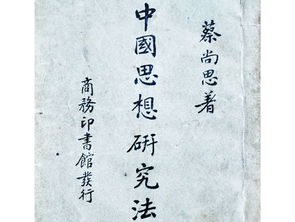 蔡尚思著
中國思想研究法
商務印書館發行